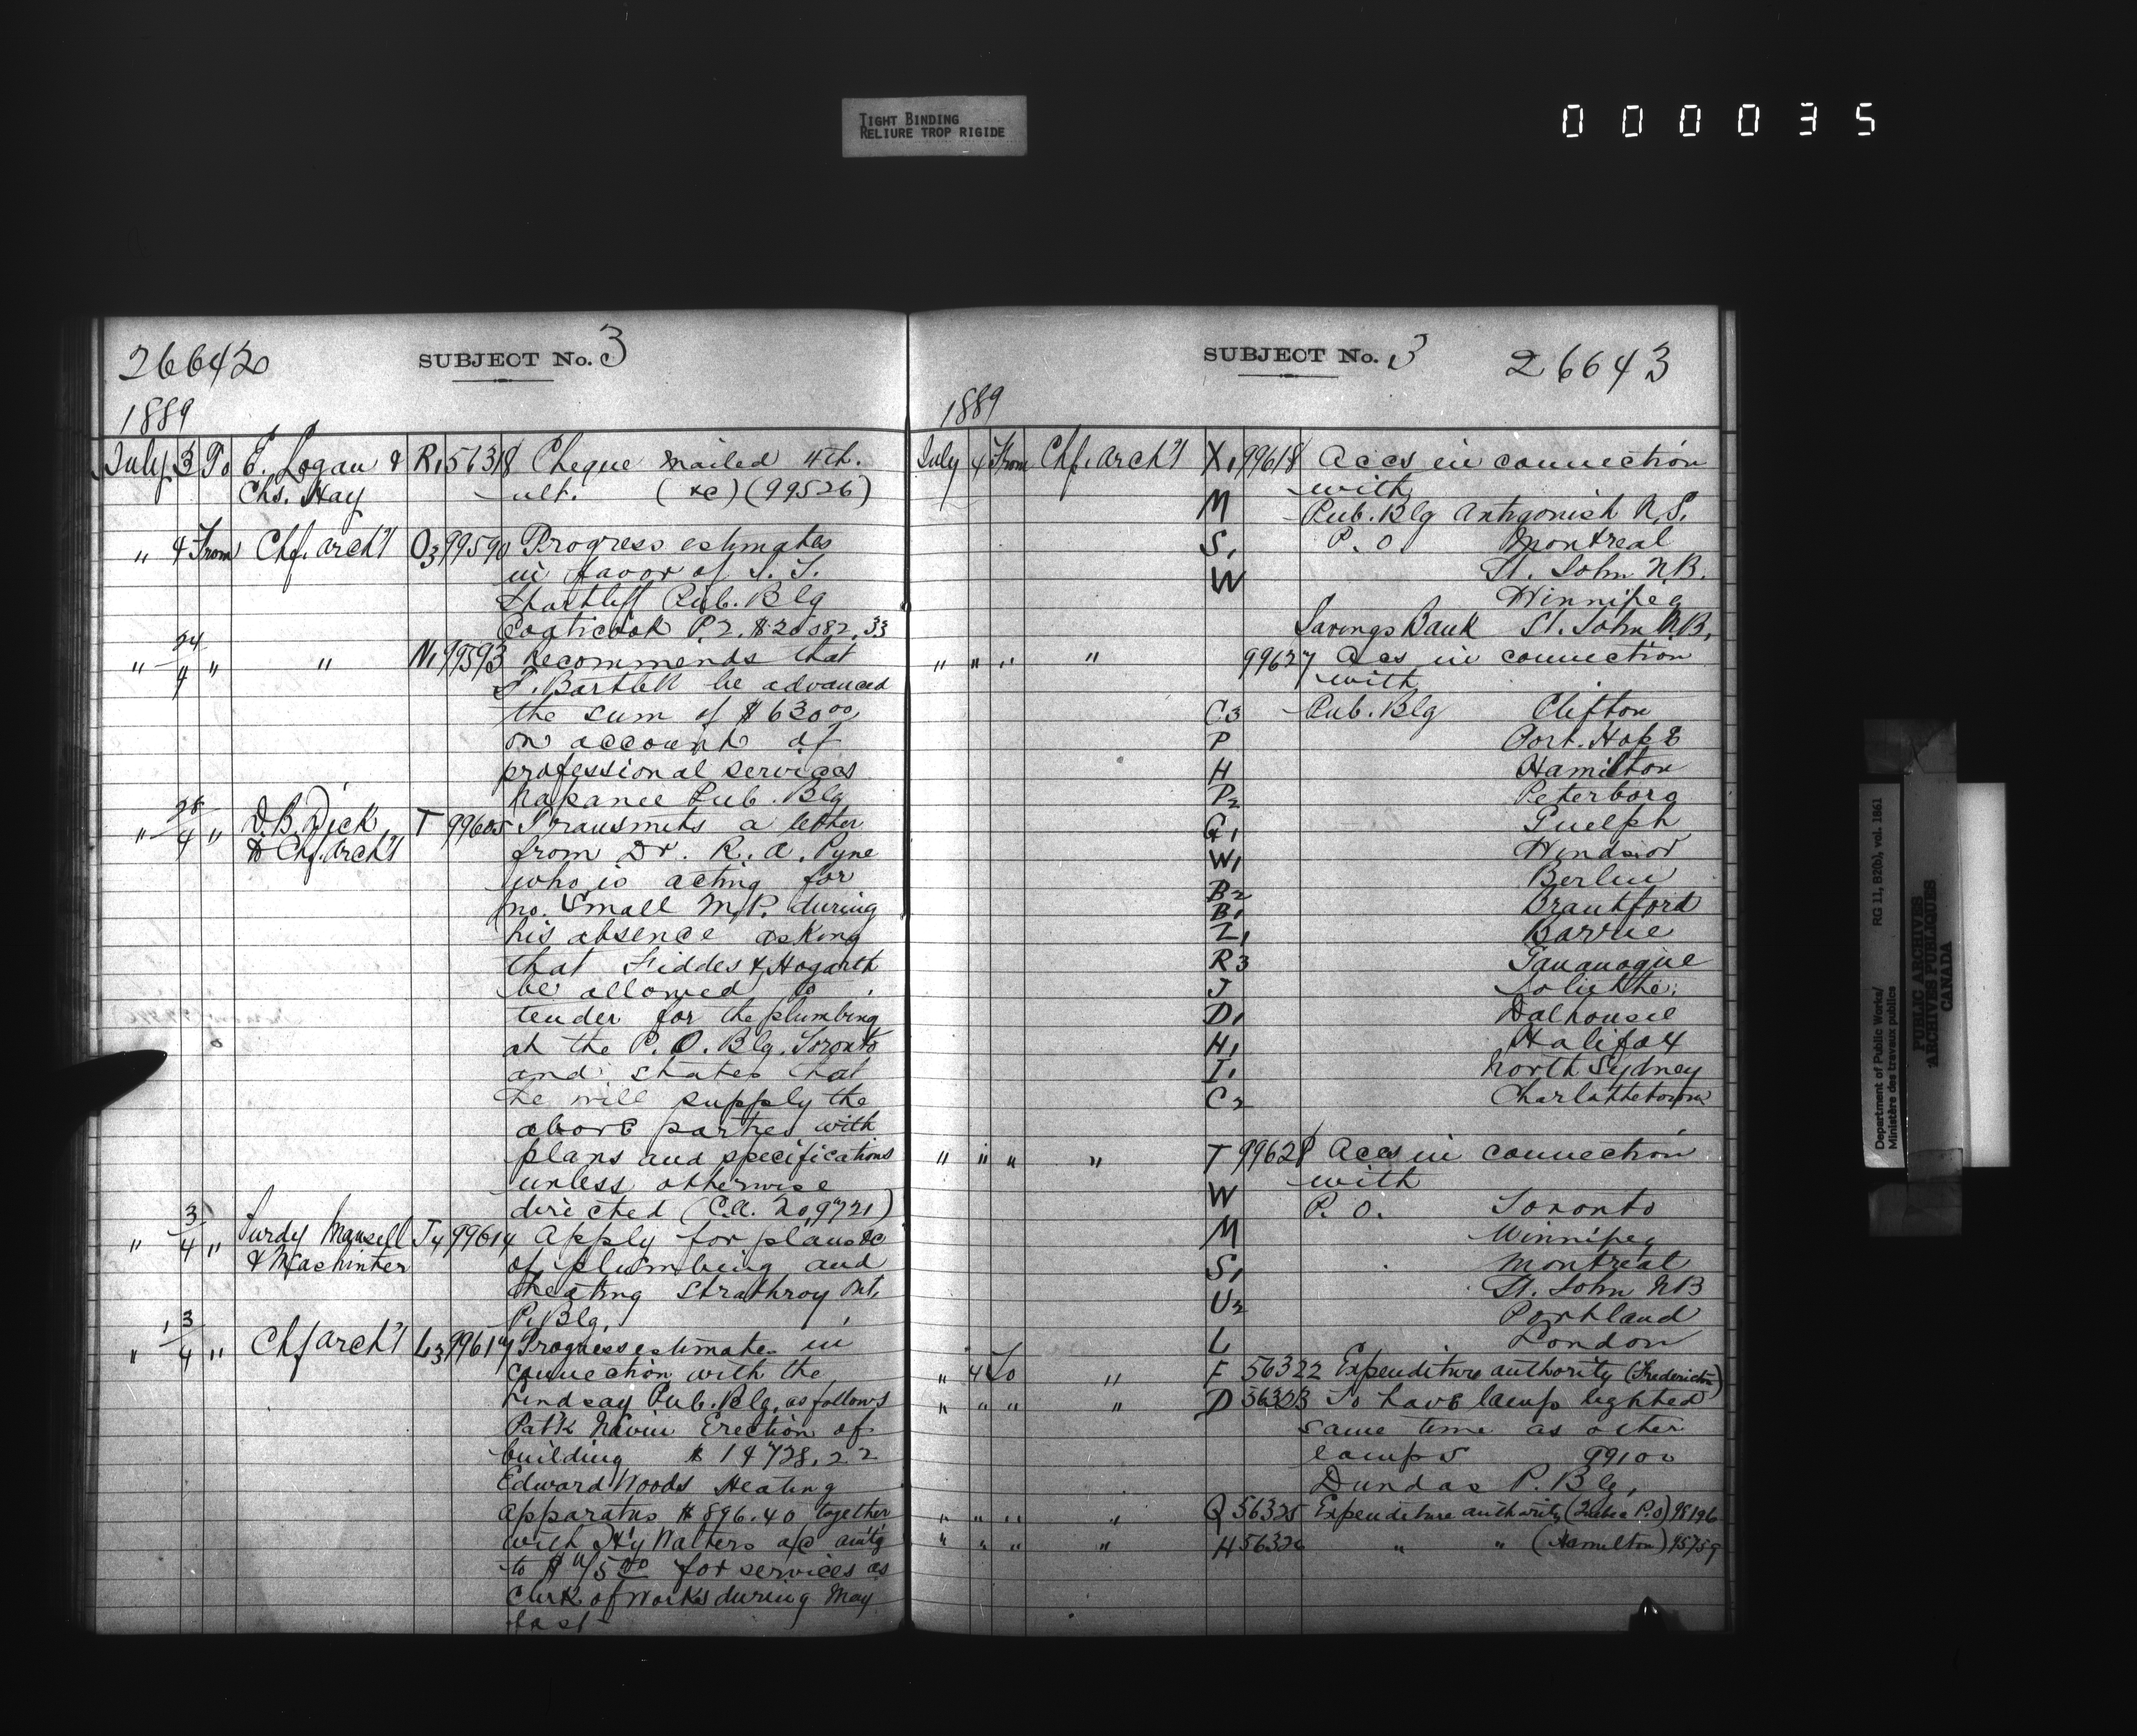 TIGHT BINDING
RELIURE TROP RIGIDE
000035
26642
SUBJECT No. 3
1889
July 3 To E. Logan & R1 56318 Cheque mailed 4th.
Chs. Hay ult. (&c) (99526)
" 4 From Chf. arch't O3 99590 Progress estimates
in favor of
Shurtleff Pub. Blg
Coaticook P.2. $20082.33
" 24/4 " " N1 99593 Recommends that
T. Bartlett be advanced
the sum of $630 00
on account of
professional services
Napanee Pub. Blg
" 28/4 " D. B. Dick T 99605 Transmits a letter
to Chf. arch't from Dr. R. A. Pyne
who is acting for
Mr. Small M.P. during
his absence asking
that Fiddes & Hogarth
be allowed to
tender for the plumbing
at the P. O. Blg. Toronto
and states that
he will supply the
above parties with
plans and specifications
unless otherwise
directed (C.A. 209721)
" 3/4 " Purdy Mansell J4 99614 Apply for plans &c
& Mashinter of plumbing and
heating Strathroy Nt.
P. Blg.
" 3/4 " Chf arch't L3 99617 Progress estimates in
connection with the
Lindsay Pub. Blg. as follows
Patk Navin Erection of
building $14728.22
Edward Woods Heating
apparatus $896.40 together
with Hy Walters a/c amtg
to for services as
Clerk of Works during May
last
SUBJECT No. 3 26643
1889
July 4 From Chf. arch't X1 99618 Accs in connection
with
M Pub. Blg Antigonish N.S.
S1 P. O. Montreal
W St. John N.B.
Winnipeg
Savings Bank St. John N.B.
" " " " 99627 Accs in connection
with
C3 Pub. Blg Clifton
P Port. Hope
H Hamilton
P2 Peterboro
G1 Guelph
W1 Windsor
B2 Berlin
B1 Brantford
Z1 Barrie
R3 Gananoque
J Joliette
D1 Dalhousie
H1 Halifax
I1 North Sydney
C2 Charlottetown
" " " " T 99628 Accs in connection
with
W P. O. Toronto
M Winnipeg
S1 Montreal
St. John NB
U2 Portland
L London
" 4 To " F 56322 Expenditure authority (Fredericton)
" " " " D 56323 To have lamp lighted
same time as other
lamps 99100
Dundas P. Blg.
" " " " Q 56325 Expenditure authority (Quebec P.O) 98196
" " " " H 56326 " " (Hamilton) 95759
Department of Public Works/
Ministère des travaux publics
RG 11, B2(b), vol. 1861
PUBLIC ARCHIVES
ARCHIVES PUBLIQUES
CANADA